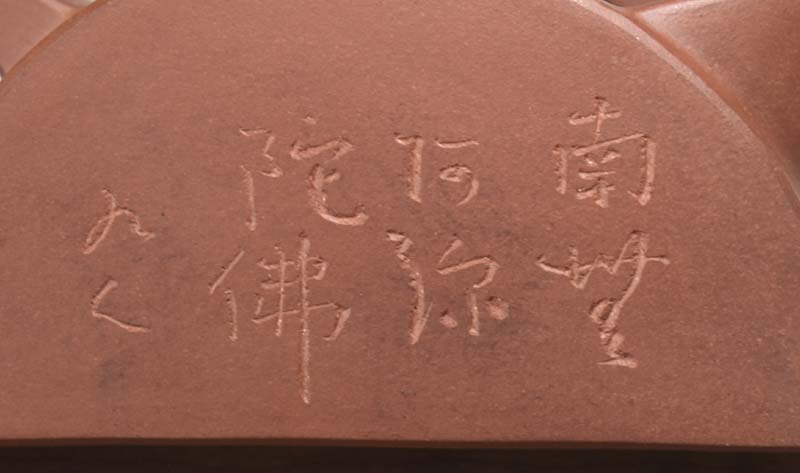 南無
阿弥
陀佛
九く